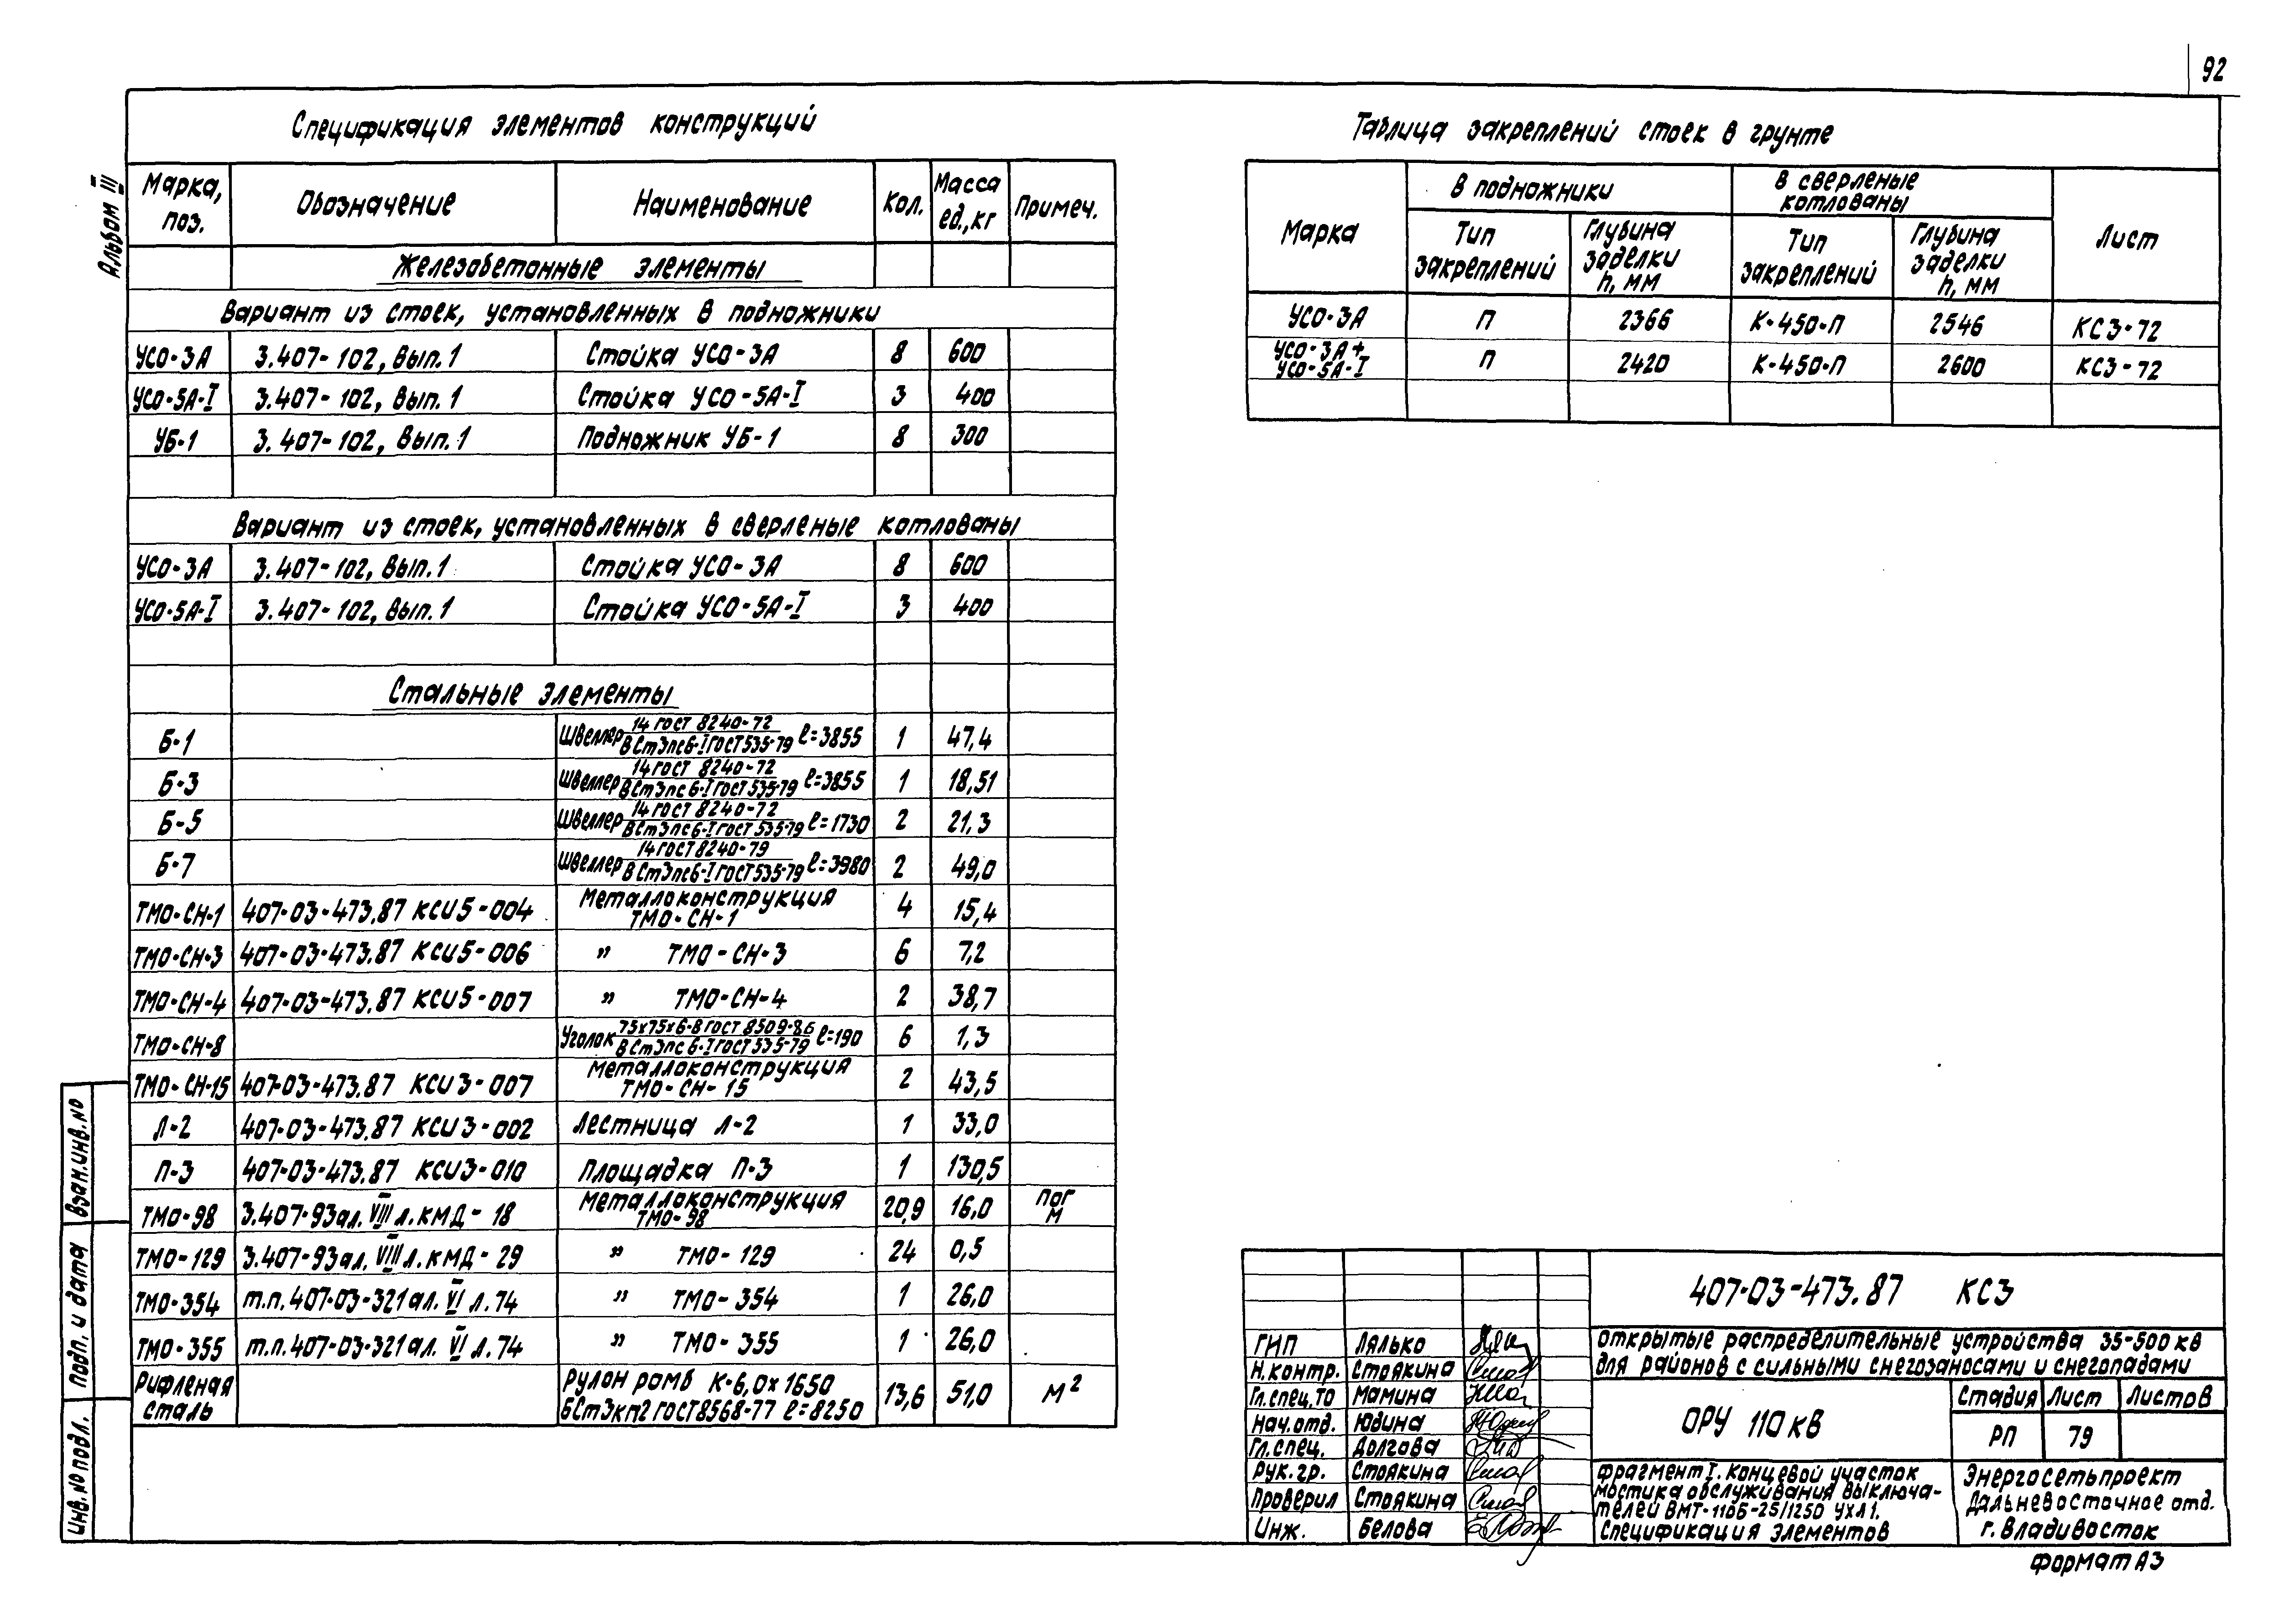 92
Альбом III
Спецификация элементов конструкций
Марка, поз. Обозначение Наименование Кол. Масса ед., кг Примеч.
Железобетонные элементы
Вариант из стоек, установленных в подножники
УСО-3А 3.407-102, Вып.1 Стойка УСО-3А 8 600
УСО-5А-I 3.407-102, Вып.1 Стойка УСО-5А-I 3 400
УБ-1 3.407-102, Вып.1 Подножник УБ-1 8 300
Вариант из стоек, установленных в сверленые котлованы
УСО-3А 3.407-102, Вып.1 Стойка УСО-3А 8 600
УСО-5А-I 3.407-102, Вып.1 Стойка УСО-5А-I 3 400
Стальные элементы
Б-1 Швеллер 14 ГОСТ 8240-72 / ВСт3пс6-I ГОСТ 535-79 ℓ=3855 1 47,4
Б-3 Швеллер 14 ГОСТ 8240-72 / ВСт3пс6-I ГОСТ 535-79 ℓ=3855 1 18,51
Б-5 Швеллер 14 ГОСТ 8240-72 / ВСт3пс6-I ГОСТ 535-79 ℓ=1730 2 21,3
Б-7 Швеллер 14 ГОСТ 8240-79 / ВСт3пс6-I ГОСТ 535-79 ℓ=3980 2 49,0
ТМО-СН-1 407-03-473.87 КСИ5-004 Металлоконструкция ТМО-СН-1 4 15,4
ТМО-СН-3 407-03-473.87 КСИ5-006 " ТМО-СН-3 6 7,2
ТМО-СН-4 407-03-473.87 КСИ5-007 " ТМО-СН-4 2 38,7
ТМО-СН-8 Уголок 75х75х6-8 ГОСТ 8509-86 / ВСт3пс6-I ГОСТ 535-79 ℓ=190 6 1,3
ТМО-СН-15 407-03-473.87 КСИ3-007 Металлоконструкция ТМО-СН-15 2 43,5
Л-2 407-03-473.87 КСИ3-002 Лестница Л-2 1 33,0
П-3 407-03-473.87 КСИ3-010 Площадка П-3 1 130,5
ТМО-98 3.407-93 ал. VIII л. КМД-18 Металлоконструкция ТМО-98 20,9 16,0 пог м
ТМО-129 3.407-93 ал. VIII л. КМД-29 " ТМО-129 24 0,5
ТМО-354 т.п. 407-03-321 ал. VI л. 74 " ТМО-354 1 26,0
ТМО-355 т.п. 407-03-321 ал. VI л. 74 " ТМО-355 1 26,0
Рифленая сталь Рулон ромб К-6,0х1650 БСт3кп2 ГОСТ 8568-77 ℓ=8250 13,6 51,0 м²
Таблица закреплений стоек в грунте
Марка В подножники В сверленые котлованы Лист
Тип закреплений Глубина заделки h, мм Тип закреплений Глубина заделки h, мм
УСО-3А П 2366 К-450-П 2546 КС3-72
УСО-3А+ УСО-5А-I П 2420 К-450-П 2600 КС3-72
Взам.инв.№
Подп. и дата
Инв.№ подл.
407-03-473.87 КС3
Открытые распределительные устройства 35-500 кв
для районов с сильными снегозаносами и снегопадами
ГИП Лялько
Н.контр. Стоякина
Гл.спец.ТО Мамина
Нач.отд. Юдина
Гл.спец. Долгова
Рук.гр. Стоякина
Проверил Стоякина
Инж. Белова
ОРУ 110 кв
Стадия Лист Листов
РП 79
Фрагмент I. Концевой участок
мостика обслуживания выключа-
телей ВМТ-110Б-25/1250 УХЛ1.
Спецификация элементов
Энергосетьпроект
Дальневосточное отд.
г. Владивосток
Формат А3